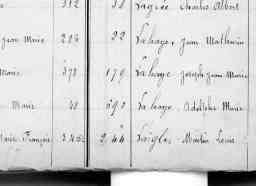 312 38 Lagrée, Charles Albert
Jean Marie 226 22 Lalaye, Jean Mathurin
Marie 378 179 Lalaye Joseph Jean Marie
Marie 48 690 Lalaye, Adolphe Marie
Marie François 244 Laigle, Martin Louis